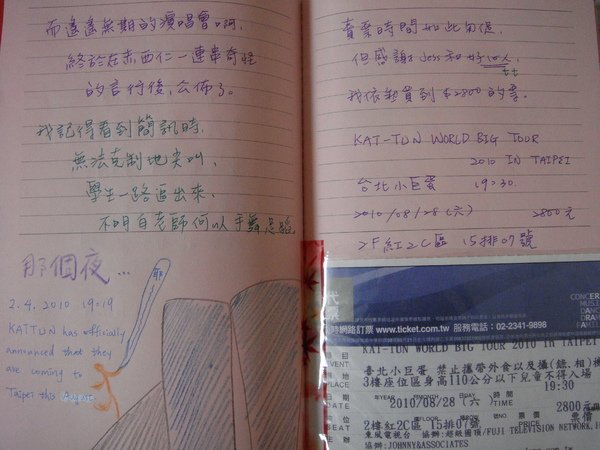 而遙遙無期的演唱會啊,
終於在赤西仁一連串奇怪
的言行後,公佈了。
我記得看到簡訊時,
無法克制地尖叫,
學生一路追出來,
不明白老師何以手舞足蹈
那個夜...
耶
2.4.2010 19:19
KATTUN has officially
announced that they
are coming to
Taipei this August.
賣票時間如此匆促,
但感謝Jess和好
我依然買到$2800的票。
KAT-TUN WORLD BIG TOUR
2010 IN TAIPEI
台北小巨蛋 19:30.
2010/08/28(六) 2800元
2F紅2C區 15排07號
代票
時網路訂票 www.ticket.com.tw 服務電話：02-2341-9898
CONCER
MUSI
DANC
DRAM
FAMIL
節目
EVENT
KAT-TUN WORLD BIG TOUR 2010 IN TAIPE
地點
PLACE
臺北小巨蛋 禁止攜帶外食以及攝(錄、相)機
3樓座位區身高110公分以下兒童不得入場
日期
DATE
2010/08/28
DAY
(六
時間
TIME
19:30
座位
SEAT
2樓紅2C區 15排07號
FLOOR
ROW
NO.
票價
PRICE
2800元
票價
主辦
東風電視台 協辦:超級圓頂/FUJI TELEVISION NETWORK,
協辦:JOHNNY&ASSOCIATES